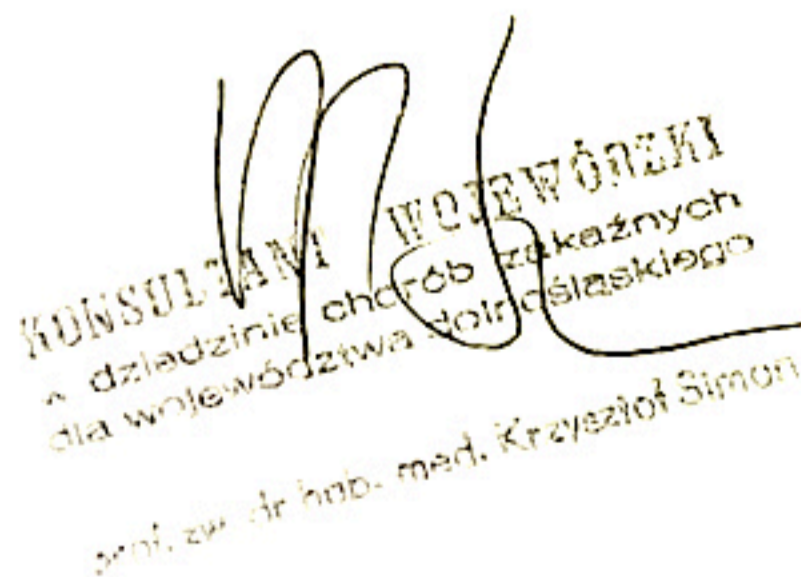 KONSULTANT WOJEWÓDZKI
w dziedzinie chorób zakaźnych
dla województwa dolnośląskiego
prof. zw. dr hab. med. Krzysztof Simon